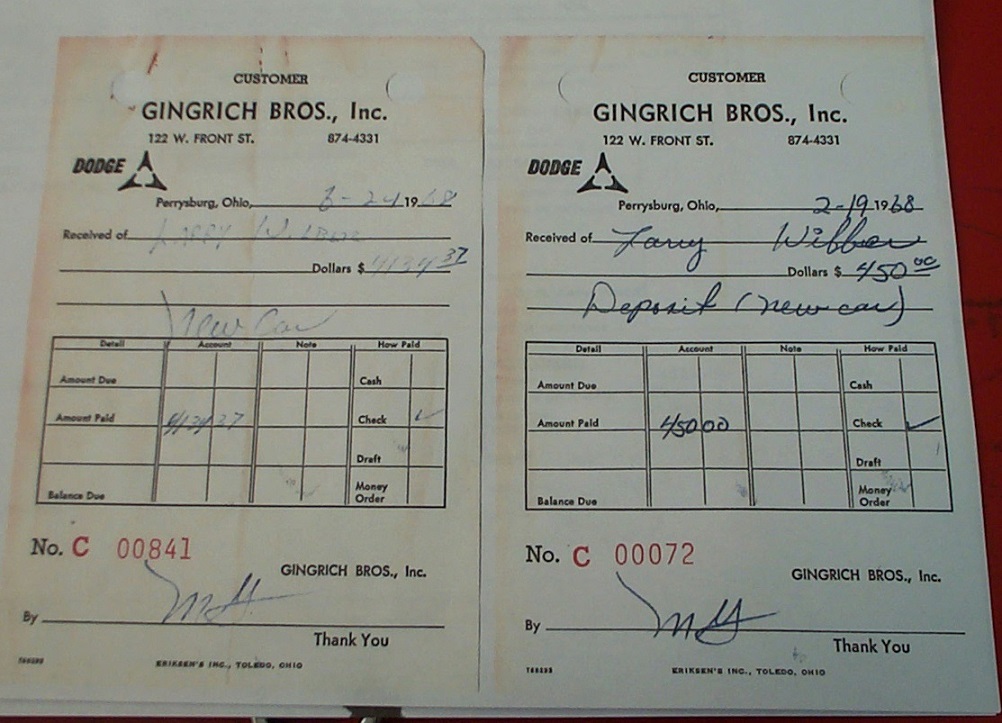 CUSTOMER
GINGRICH BROS., Inc.
122 W. FRONT ST. 874-4331
DODGE
Perrysburg, Ohio, 24 1968
Received of Larry
Dollars $ 4134 37
New Car
Detail Account Note How Paid
Amount Due Cash
Amount Paid 4134 37 Check ✓
Draft
Balance Due Money Order
No. C 00841
GINGRICH BROS., Inc.
By MG
Thank You
ERIKSEN'S INC., TOLEDO, OHIO
CUSTOMER
GINGRICH BROS., Inc.
122 W. FRONT ST. 874-4331
DODGE
Perrysburg, Ohio, 2-19 1968
Received of Larry
Dollars $ 450 00
Deposit (new car)
Detail Account Note How Paid
Amount Due Cash
Amount Paid 450 00 Check ✓
Draft
Balance Due Money Order
No. C 00072
GINGRICH BROS., Inc.
By MG
Thank You
ERIKSEN'S INC., TOLEDO, OHIO